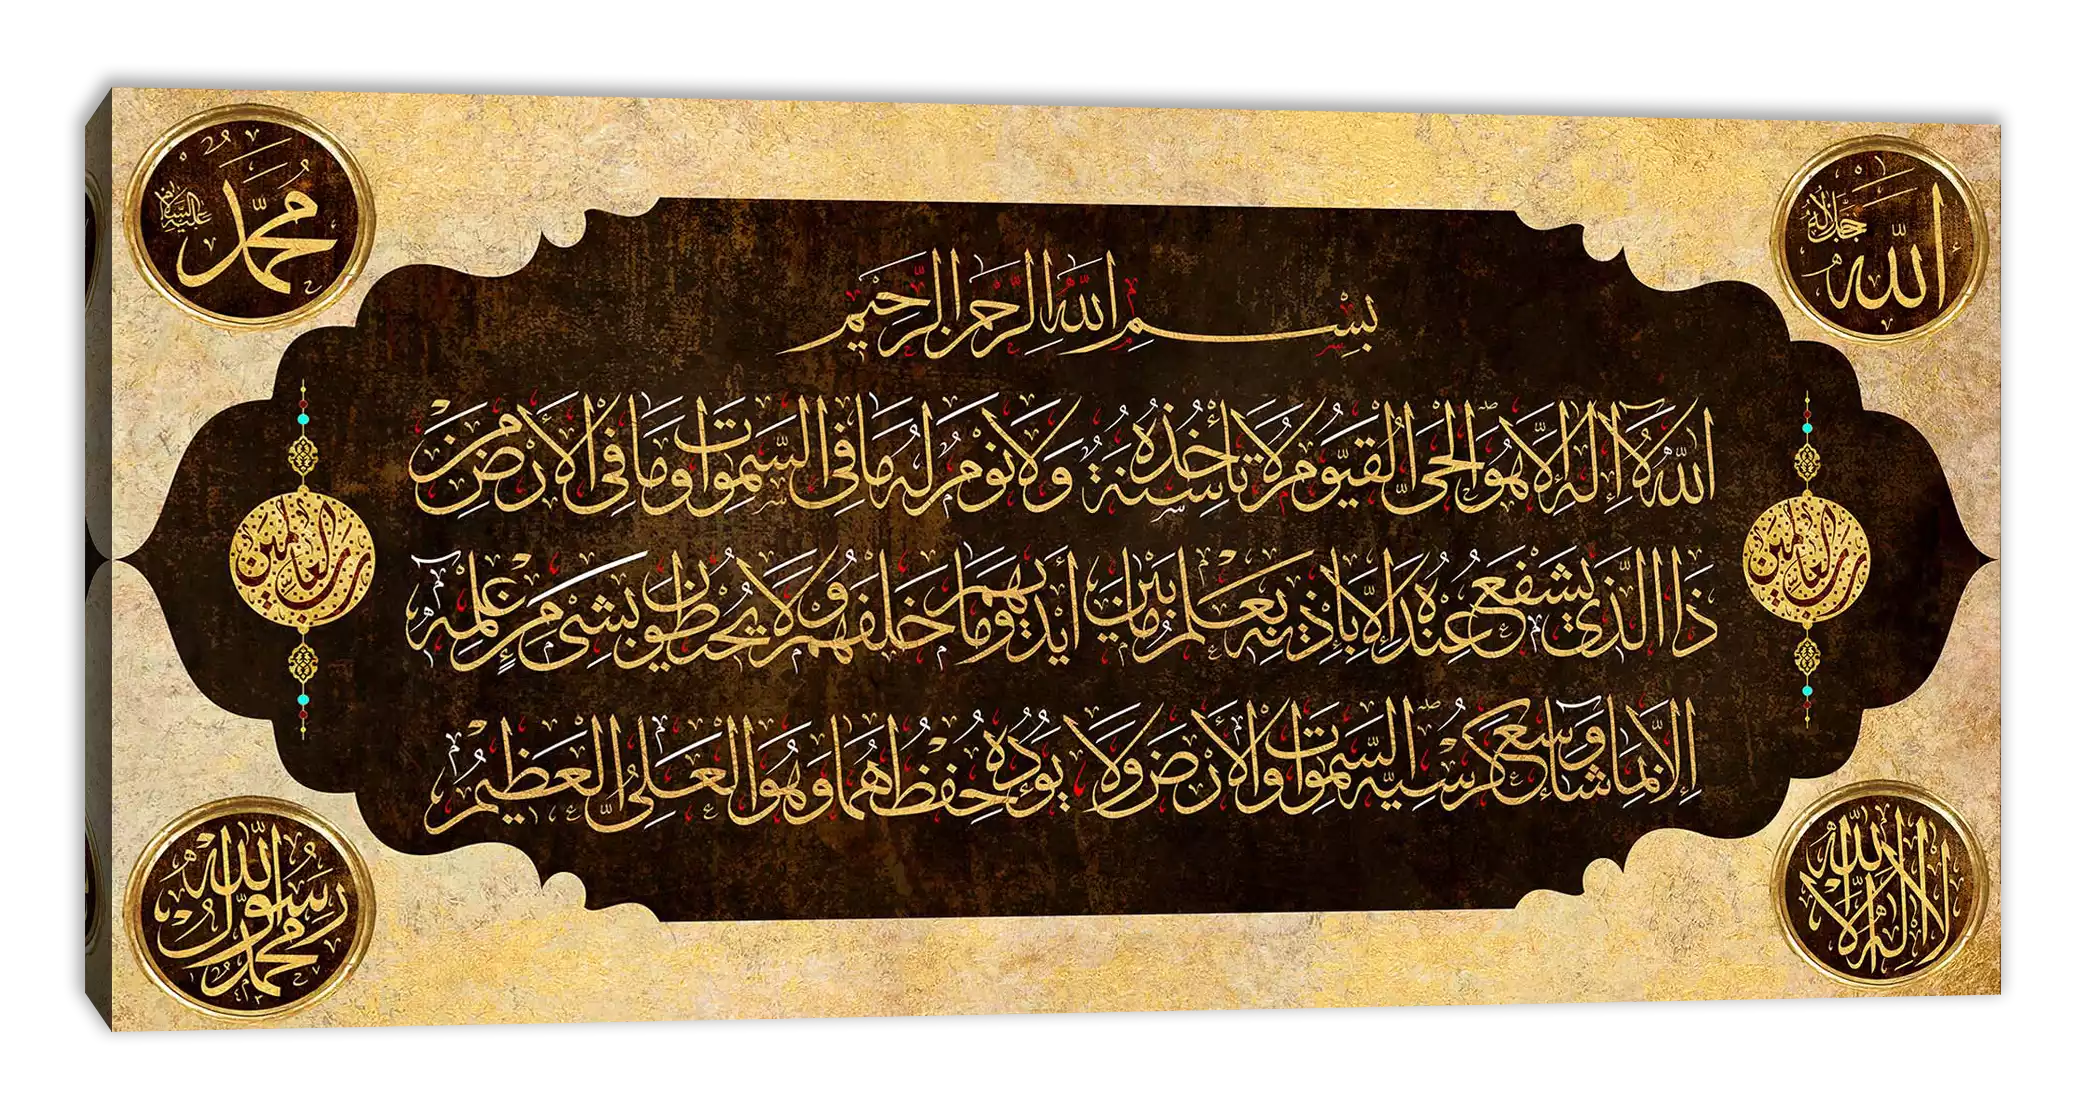 الله جل جلاله
محمد عليه السلام
بِسْمِ اللهِ الرَّحْمٰنِ الرَّحِيمِ
اَللهُ لَا إِلٰهَ إِلَّا هُوَ الْحَيُّ الْقَيُّومُ لَا تَأْخُذُهُ سِنَةٌ وَلَا نَوْمٌ لَهُ مَا فِي السَّمٰوَاتِ وَمَا فِي الْأَرْضِ مَنْ
ذَا الَّذِي يَشْفَعُ عِنْدَهُ إِلَّا بِإِذْنِهِ يَعْلَمُ مَا بَيْنَ أَيْدِيهِمْ وَمَا خَلْفَهُمْ وَلَا يُحِيطُونَ بِشَيْءٍ مِنْ عِلْمِهِ
إِلَّا بِمَا شَاءَ وَسِعَ كُرْسِيُّهُ السَّمٰوَاتِ وَالْأَرْضَ وَلَا يَؤُدُهُ حِفْظُهُمَا وَهُوَ الْعَلِيُّ الْعَظِيمُ
رب العالمين
رب العالمين
لا إله إلا الله
محمد رسول الله